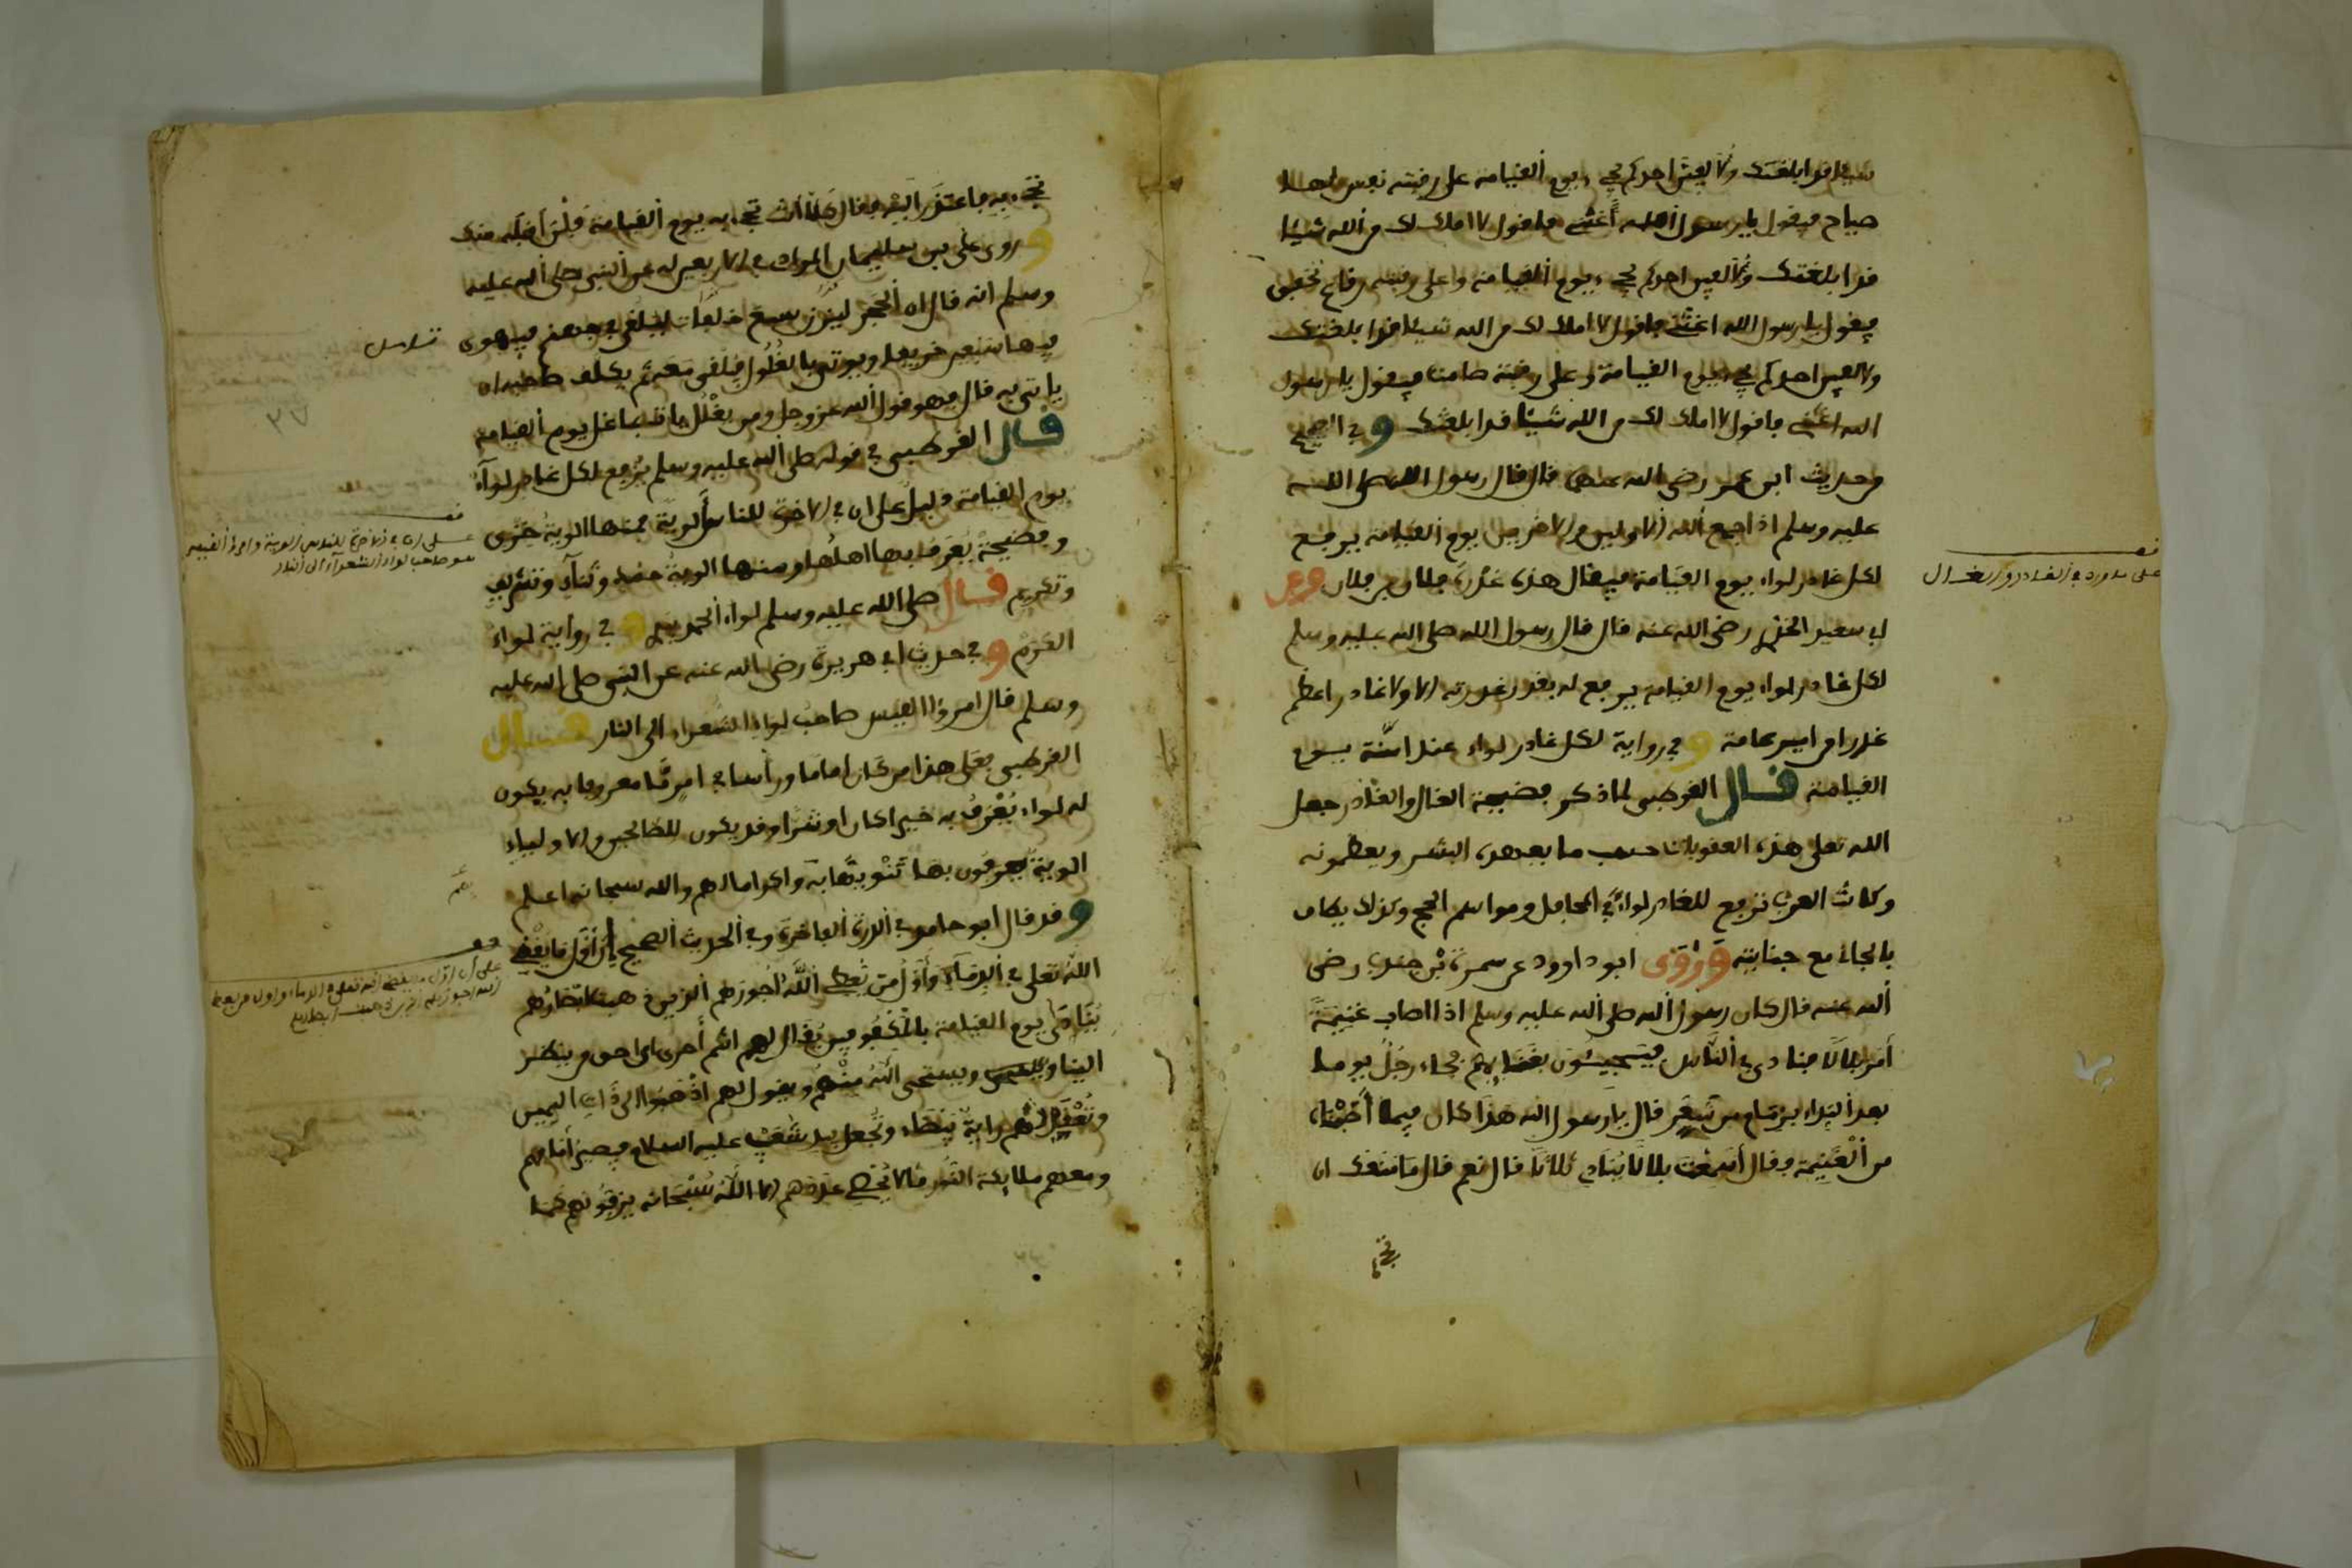 شيئا قد ابلغتك ولا الفين احدكم يجيء يوم القيامة على رقبته نفس لها
صياح فيقول يا رسول الله أغثني فاقول لا املك لك من الله شيئا
قد ابلغتك ولا الفين احدكم يجيء يوم القيامة وعلى رقبته رقاع تخفق
فيقول يا رسول الله اغثني فاقول لا املك لك من الله شيئا قد ابلغتك
ولا الفين احدكم يجيء يوم القيامة وعلى رقبته صامت فيقول يا رسول
الله اغثني فاقول لا املك لك من الله شيئا قد ابلغتك وفي الصحيح
من حديث ابن عمر رضي الله عنهما قال قال رسول الله صلى الله
عليه وسلم اذا جمع الله الاولين والاخرين يوم القيامة يرفع
لكل غادر لواء يوم القيامة فيقال هذه غدرة فلان بن فلان وعن
ابي سعيد الخدري رضي الله عنه قال قال رسول الله صلى الله عليه وسلم
لكل غادر لواء يوم القيامة يرفع له بقدر غدرته الا ولا غادر اعظم
غدرا من امير عامة وفي رواية لكل غادر لواء عند استه يوم
القيامة قال القرطبي لما ذكر فضيحة الغال والغادر جعل
الله تعلى هذه العقوبات حسب ما يعهده البشر ويعظمونه
وكانت العرب ترفع للغادر لواء في المحافل ومواسم الحج وكذلك يطاف
بالجاني مع جنايته وروى ابو داوود عن سمرة بن جندب رضي
الله عنه قال كان رسول الله صلى الله عليه وسلم اذا اصاب غنيمة
أمر بلالا فنادى في الناس فيجيئون بغنائمهم فجاء رجل يوما
بعد النداء بزمام من شعر فقال يا رسول الله هذا كان فيما أصبناه
من الغنيمة فقال أسمعت بلالا ينادي ثلاثا قال نعم قال ما منعك ان
على ما ورد في الغادر والغال
تجيء به فاعتذر اليه فقال كلا أنت تجيء به يوم القيامة فلن أقبله منك
وروى علي بن سليمان المرادي في الاربعين له عن النبي صلى الله عليه
وسلم انه قال ان الحجر ليزن سبع خلفات ليلقى في جهنم فيهوى
فيها سبعين خريفا ويوتى بالغلول فيلقى معه ثم يكلف صاحبه ان
ياتي به قال وهو قول الله عز وجل ومن يغلل يات بما غل يوم القيامة
قال القرطبي في قوله صلى الله عليه وسلم يرفع لكل غادر لواء
يوم القيامة دليل على ان في الاخرة للناس ألوية فمنها الوية خزي
وفضيحة يعرف بها اهلها ومنها الوية حمد وثناء وتشريف
وتكريم قال صلى الله عليه وسلم لواء الحمد بيدي وفي رواية لواء
الكرم وفي حديث ابي هريرة رضي الله عنه عن النبي صلى الله عليه
وسلم قال امرؤ القيس صاحب لواء الشعراء الى النار قال
القرطبي فعلى هذا من كان اماما ورأسا في امر ما معروفا به يكون
له لواء يعرف به خيرا كان او شرا وقد يكون للصالحين والاولياء
الوية يعرفون بها تنويها به واكراما لهم والله سبحانه اعلم
وقد قال ابو حامد في الدرة الفاخرة وفي الحديث الصحيح إن أول ما يقضي
الله تعلى فيه الدماء وأول من يعطي الله اجورهم الذين ذهبت ابصارهم
ينادى يوم القيامة بالمكفوفين يقال لهم انتم أحرى اي احق من ينظر
الينا ويستحي الله منهم ويقول لهم اذهبوا الى ذات اليمين
وتعقد لهم راية بيضاء وتجعل بيد شعيب عليه السلام فيصير أمامهم
ومعهم ملايكة النور ما لا يحصي عددهم الا الله سبحانه يزفونهم كما
على ان في الاخرة للناس الوية وامرؤ القيس
هو صاحب لواء الشعراء الى النار
على أن اول ما يقضي الله تعلى فيه الدماء واول من يعطي
الله اجورهم الذين ذهبت ابصارهم